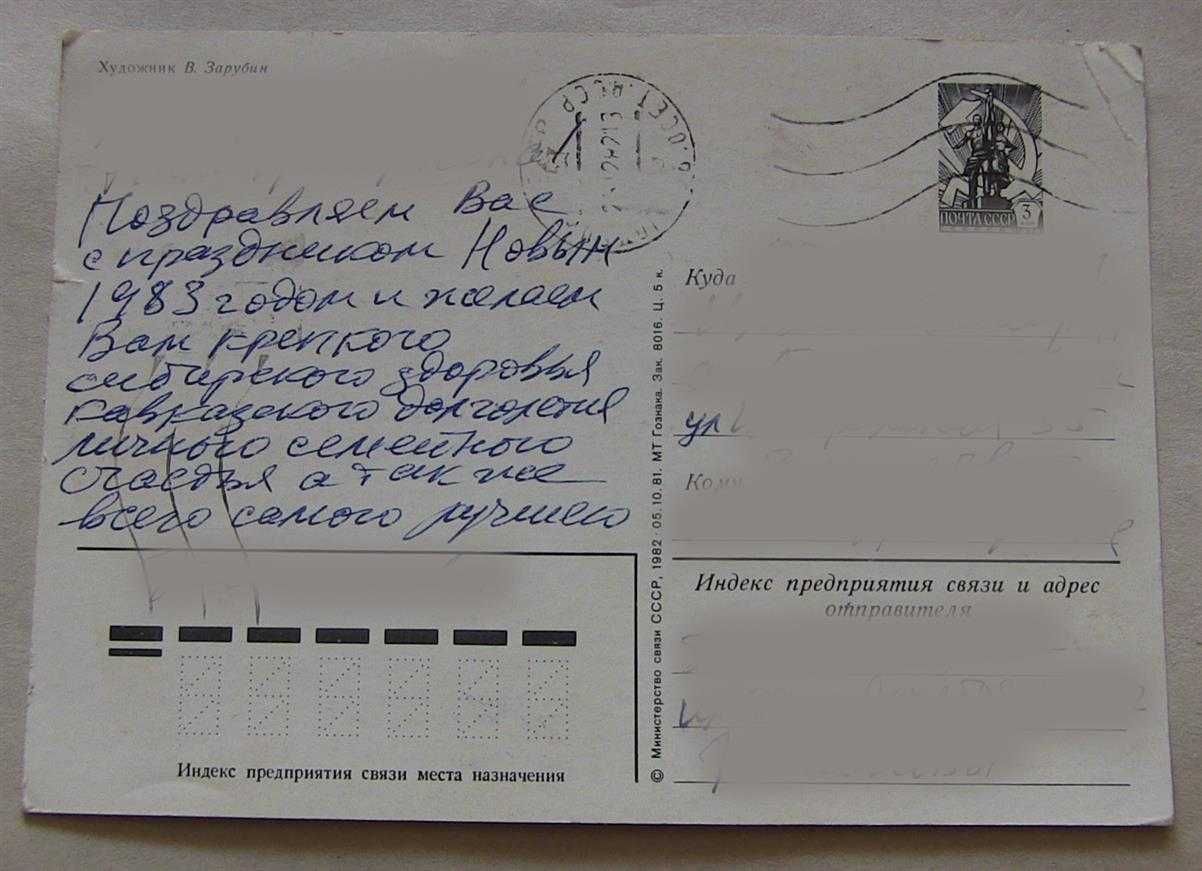 Художник В. Зарубин
Поздравляем Вас
с праздником Новым
1983 годом и желаем
Вам крепкого
сибирского здоровья
кавказского долголетия
личного семейного
счастья а так же
всего самого лучшего
ПОЧТА СССР 3
Куда
ул
Кому
Индекс предприятия связи и адрес
отправителя
Индекс предприятия связи места назначения
© Министерство связи СССР, 1982 · 05.10.81. МТ Гознака. Зак. 8016. Ц. 5 к.